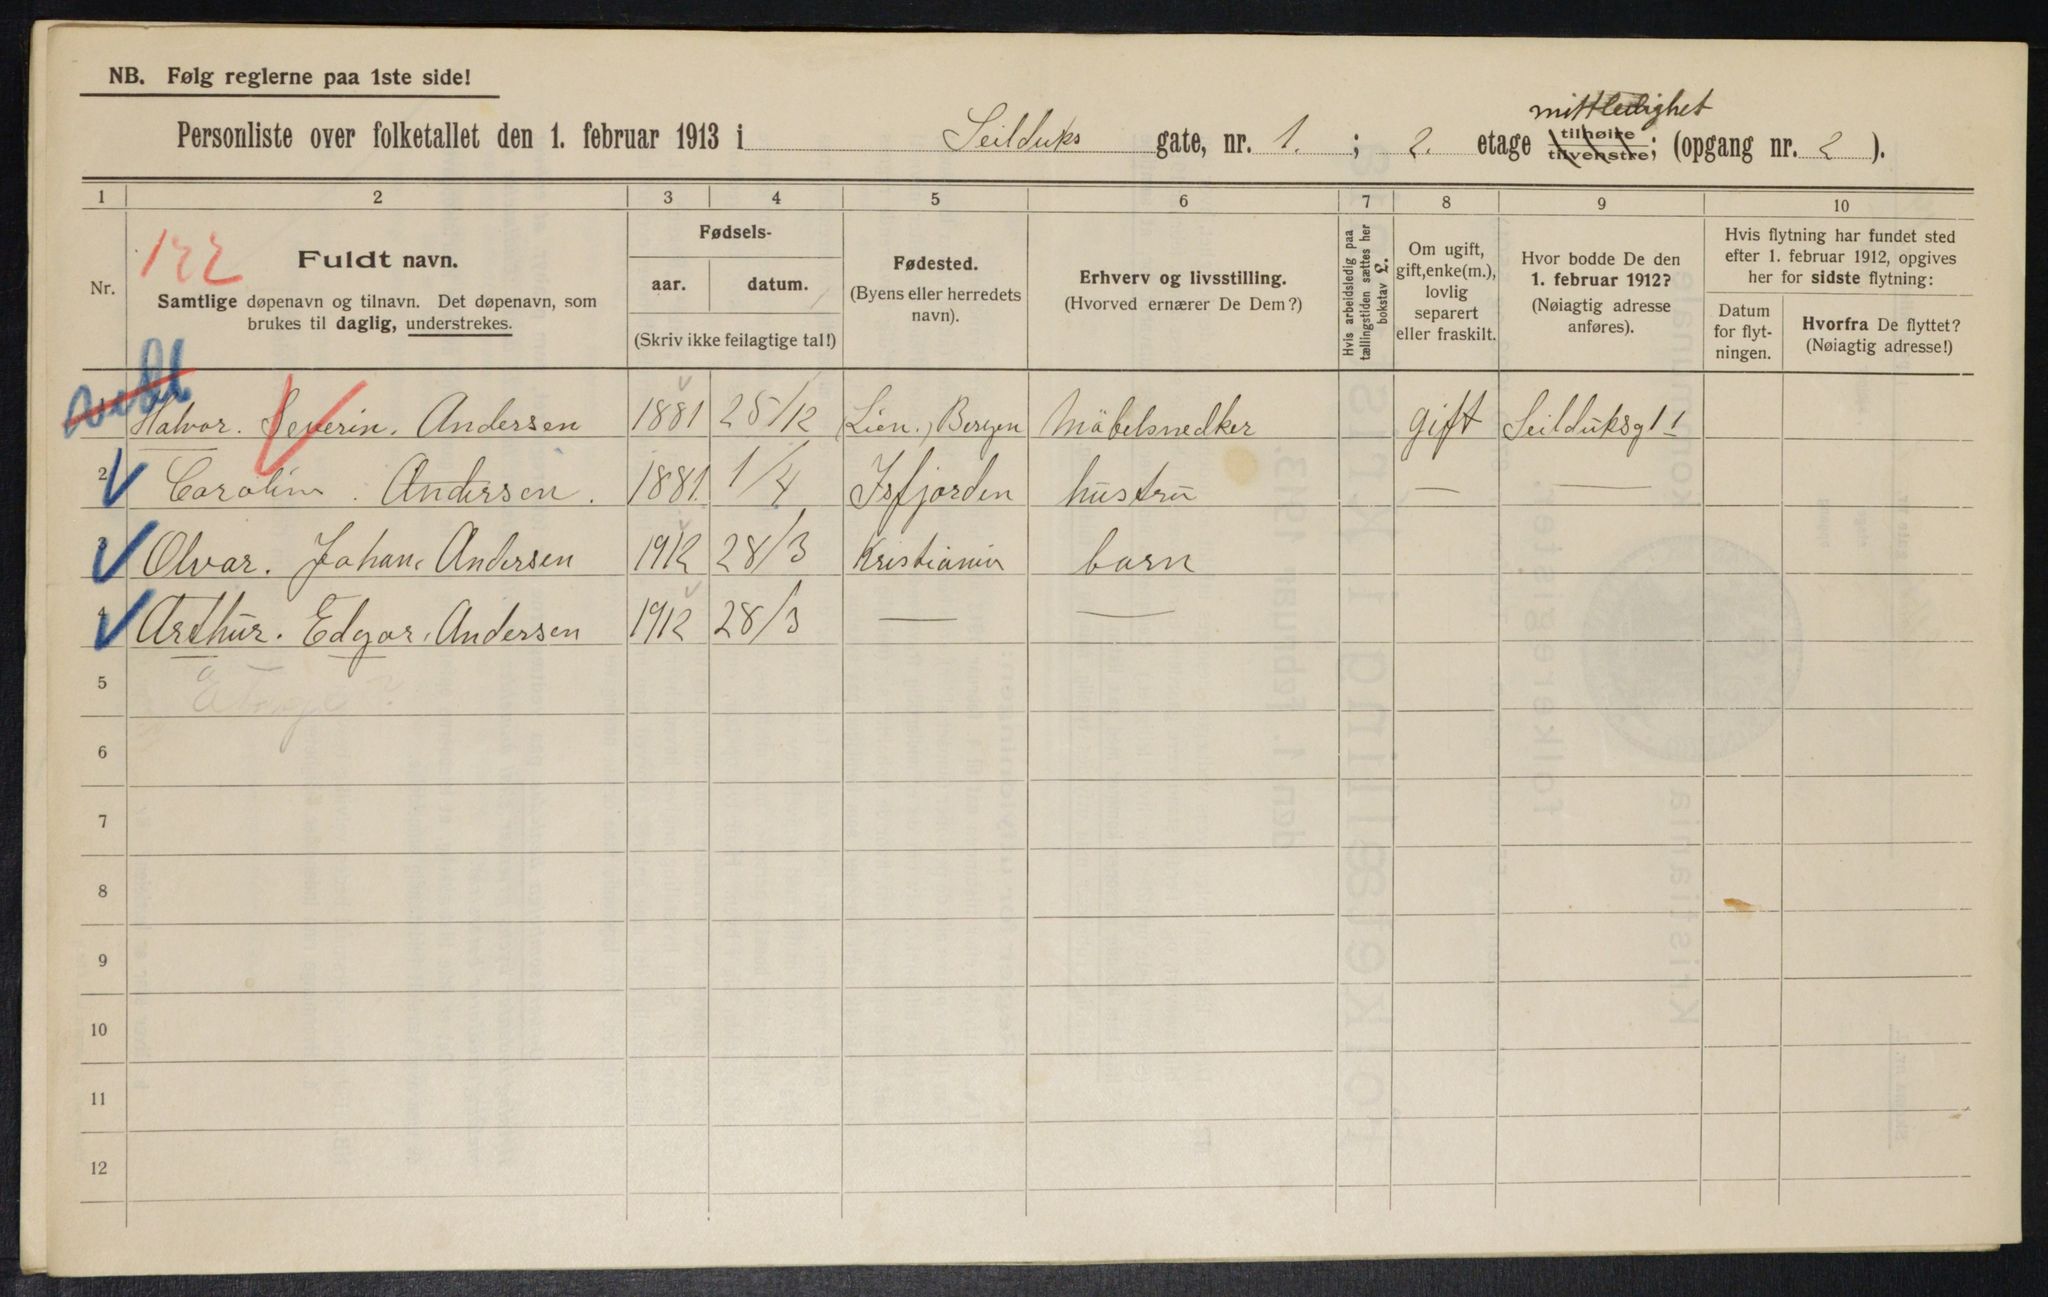 NB. Følg reglerne paa 1ste side!
Personliste over folketallet den 1. februar 1913 i Seilduks gate, nr. 1. ; 2. etage tilhøire tilvenstre; mittledighet (opgang nr. 2 ).
1 2 3 4 5 6 7 8 9 10
122
Nr.
Fuldt navn.
Samtlige døpenavn og tilnavn. Det døpenavn, som
brukes til daglig, understrekes.
Fødsels-
aar. datum.
(Skriv ikke feilagtige tal!)
Fødested.
(Byens eller herredets
navn).
Erhverv og livsstilling.
(Hvorved ernærer De Dem?)
Hvis arbeidsledig paa
tællingstiden sættes her
bokstav £.
Om ugift,
gift, enke(m.),
lovlig
separert
eller fraskilt.
Hvor bodde De den
1. februar 1912?
(Nøiagtig adresse
anføres).
Hvis flytning har fundet sted
efter 1. februar 1912, opgives
her for sidste flytning:
Datum
for flyt-
ningen.
Hvorfra De flyttet?
(Nøiagtig adresse!)
1 Halvor. Severin. Andersen 1881 25/12 (Lien.) Bergen Møbelsnedker gift Seilduksg 1
2 Carolin. Andersen. 1881 1/4 Isfjorden hustru — —
3 Olvar. Johan. Andersen 1912 28/3 Kristiania barn
4 Arthur. Edgar. Andersen 1912 28/3 — —
5
6
7
8
9
10
11
12